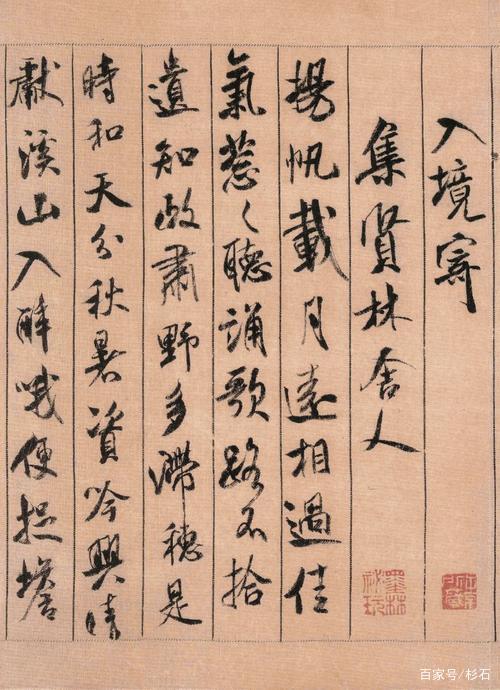 入境寄
集賢林舍人
揚帆載月遠相過佳
氣葱〻聽誦歌路不拾
遺知政肅野多滯穗是
時和天分秋暑資吟興晴
獻溪山入醉哦便捉蟾
墨林秘玩
百家号/杉石